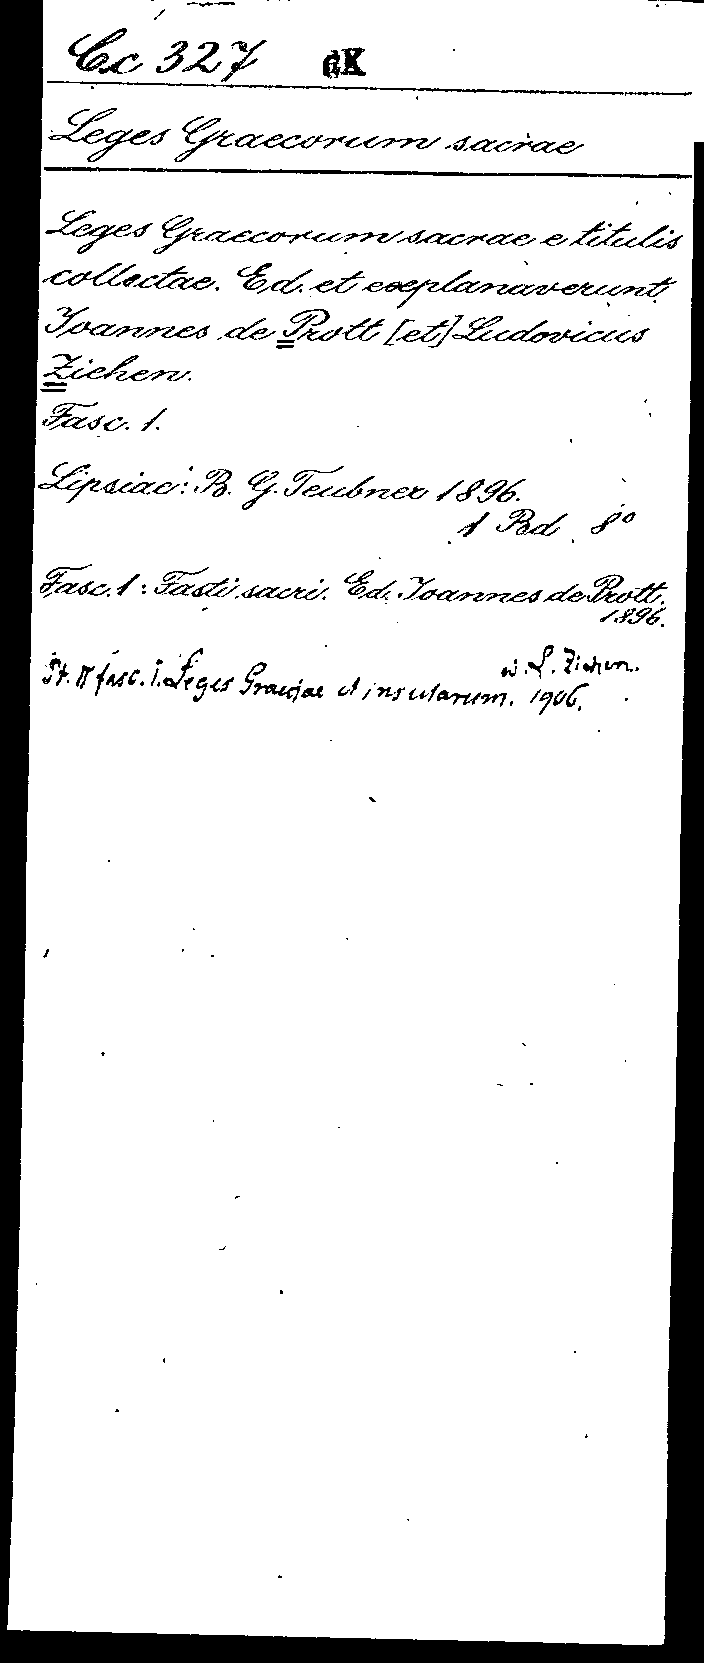 Cc 327 GK
Leges Graecorum sacrae
Leges Graecorum sacrae e titulis
collectae. Ed. et explanaverunt
Joannes de Prott [et] Ludovicus
Ziehen.
Fasc. 1.
Lipsiae: B. G. Teubner 1896.
1 Bd 8°
Fasc. 1: Fasti sacri. Ed. Joannes de Prott.
1896.
ed. L. Ziehen.
Pt. II fasc. I. Leges Graeciae et insularum. 1906.